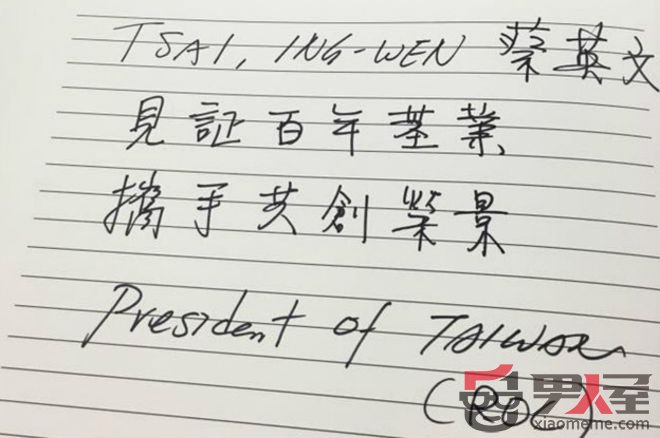 TSAI, ING-WEN 蔡英文
見証百年基業
攜手共創榮景
President of TAIWAN
(ROC)
男人窝
xiaomeme.com